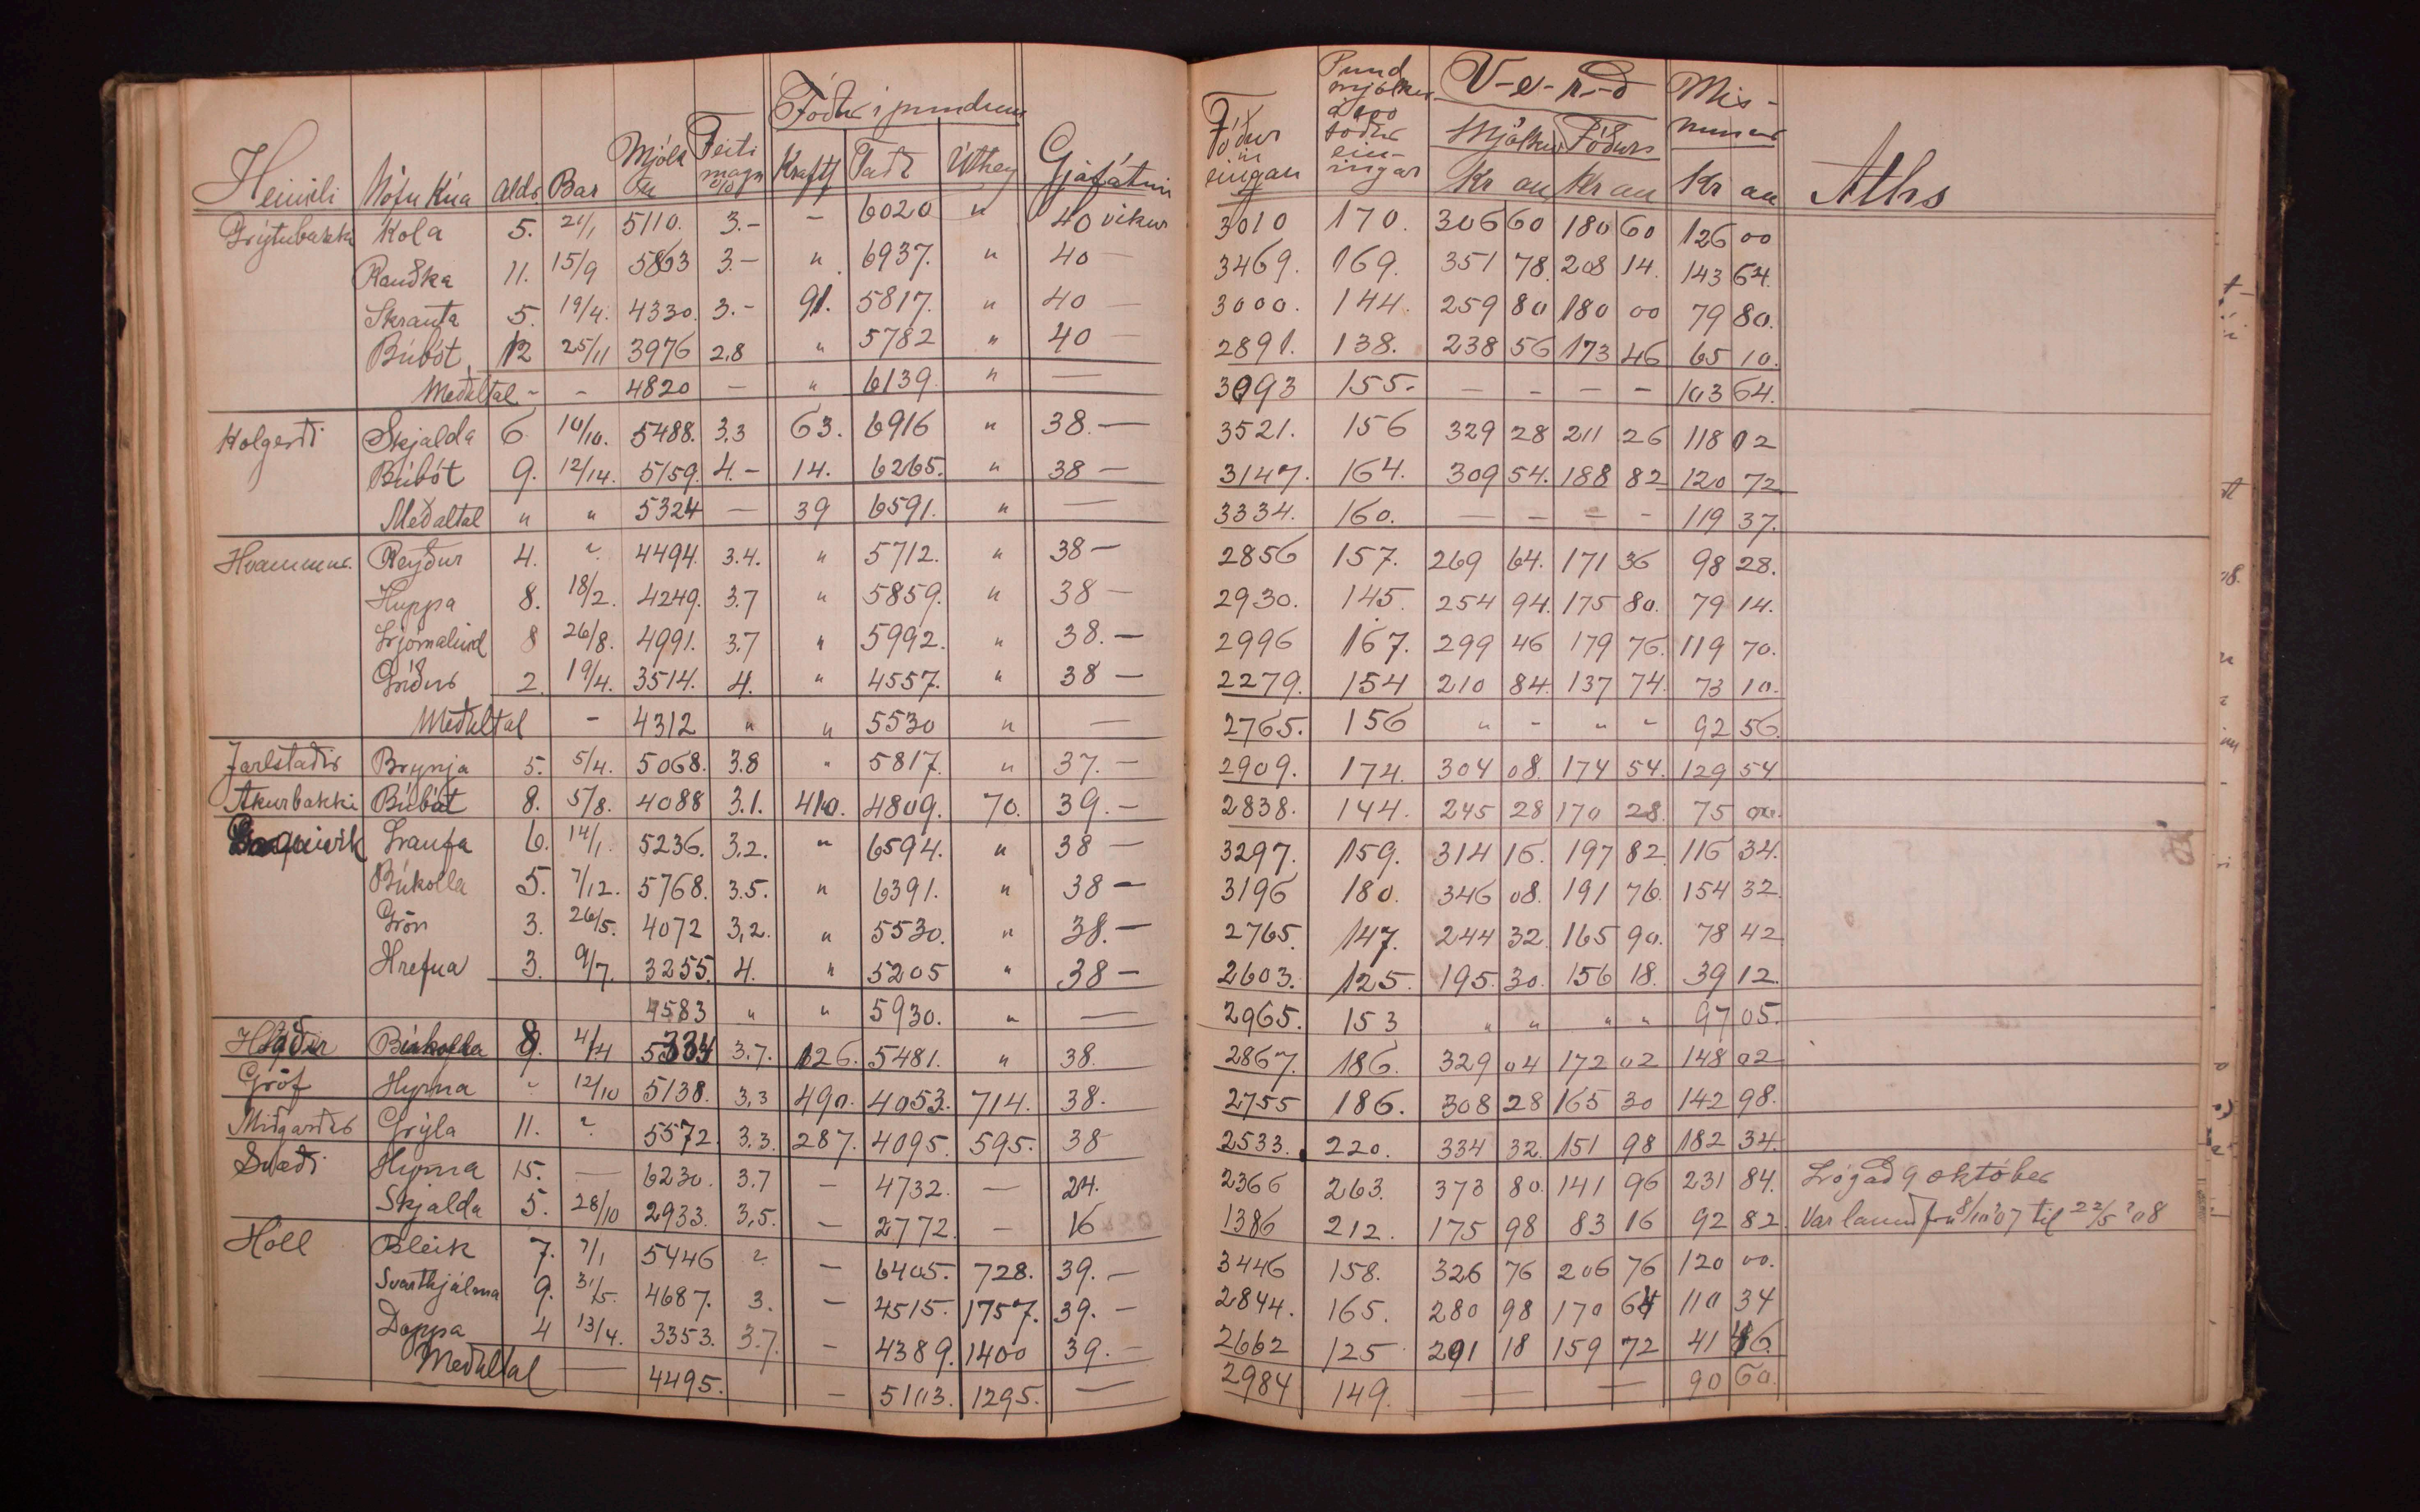 Fóður í pundum
Heimili Nöfn Kúa Aldr Bar Mjólk Feiti magn % Kraftf Taða Úthey Gjafatími
Grýtubakki Kola 5. 21/1 5110. 3.- - 6020 " 40 vikur
Rauðka 11. 15/9 5863 3.- " 6937. " 40 -
Skrauta 5. 19/4. 4330. 3.- 91. 5817. " 40 -
Búbót 12 25/11 3976 2,8 " 5782 " 40
Meðaltal - - 4820 - " 6139. " -
Kolgerði Skjalda 6. 10/10. 5488. 3.3 63. 6916 " 38. -
Búbót 9. 12/14. 5159. 4.- 14. 6265. " 38 -
Meðaltal " " 5324 - 39 6591. " -
Hvammur. Reyður 4. ? 4494. 3.4. " 5712. " 38 -
Huppa 8. 18/2. 4249. 3.7 " 5859. " 38 -
Ljómalind 8 26/8. 4991. 3.7 " 5992. " 38. -
Gríður 2. 19/4. 3514. 4. " 4557. " 38 -
Meðaltal - 4312 " " 5530 " -
Jarlstaðir Brynja 5. 5/4. 5068. 3.8 " 5817. " 37. -
Akurbakki Búbót 8. 5/8. 4088 3.1. 410. 4809. 70. 39. -
Laufa 6. 14/1. 5236. 3.2. " 6594. " 38 -
Búkolla 5. 7/12. 5768. 3.5. " 6391. " 38 -
Grön 3. 26/5. 4072 3,2. " 5530. " 38. -
Hrefna 3. 9/7. 3255. 4. " 5205 " 38 -
4583 " " 5930. " -
Búkolla 4/4 5334 3.7. 126. 5481. " 38.
Gröf Hyrna " 12/10 5138. 3,3 490. 4053. 714. 38.
Miðgarðar Grýla 11. ? 5572. 3.3. 287. 4095. 595. 38
Svæði Hyrna 15. - 6230. 3.7 - 4732. - 24.
Skjalda 5. 28/10 2933. 3,5. - 2772. - 16
Höll Bleik 7. 7/1 5446 ? - 6405. 728. 39. -
Svarthjálma 9. 31/5. 4687. 3. - 4515. 1757. 39. -
Doppa 4 13/4. 3353. 3.7. - 4389. 1400 39. -
Meðaltal - 4495. - 5103. 1295. -
Fóður ein ingar Pund mjólkur á 100 fóður ein- ingar V-e-r-ð Mis- munur
Mjólkur Fóðurs
Kr au Kr au Kr au Aths
3010 170. 306 60 180 60 126 00
3469. 169. 351 78. 208 14. 143 64.
3000. 144. 259 80 180 00 79 80.
2891. 138. 238 56 173 46 65 10.
3093 155. - - - - 103 64.
3521. 156 329 28 211 26 118 02
3147. 164. 309 54. 188 82 120 72.
3334. 160. - - - - 119 37.
2856 157. 269 64. 171 36 98 28.
2930. 145. 254 94. 175 80. 79 14.
2996 167. 299 46 179 76. 119 70.
2279. 154 210 84. 137 74. 73 10.
2765. 156 " - " " 92 56.
2909. 174. 304 08. 174 54. 129 54
2838. 144. 245 28 170 28. 75 00.
3297. 159. 314 16. 197 82. 116 34.
3196 180. 346 08. 191 76. 154 32.
2765. 147. 244 32. 165 90. 78 42
2603. 125. 195. 30. 156 18. 39 12.
2965. 153 " " " " 97 05.
2867. 186. 329 04 172 02 148 02
2755 186. 308 28 165 30 142 98.
2533. 220. 334 32. 151 98 182 34.
2366 263. 373 80. 141 96 231 84. Lógað 9 október
1386 212. 175 98 83 16 92 82. Var lánuð frá 8/10 '07 til 22/5 '08
3446 158. 326 76 206 76 120 00.
2844. 165. 280 98 170 64 110 34
2662 125 201 18 159 72 41 46.
2984 149. - - 90 60.